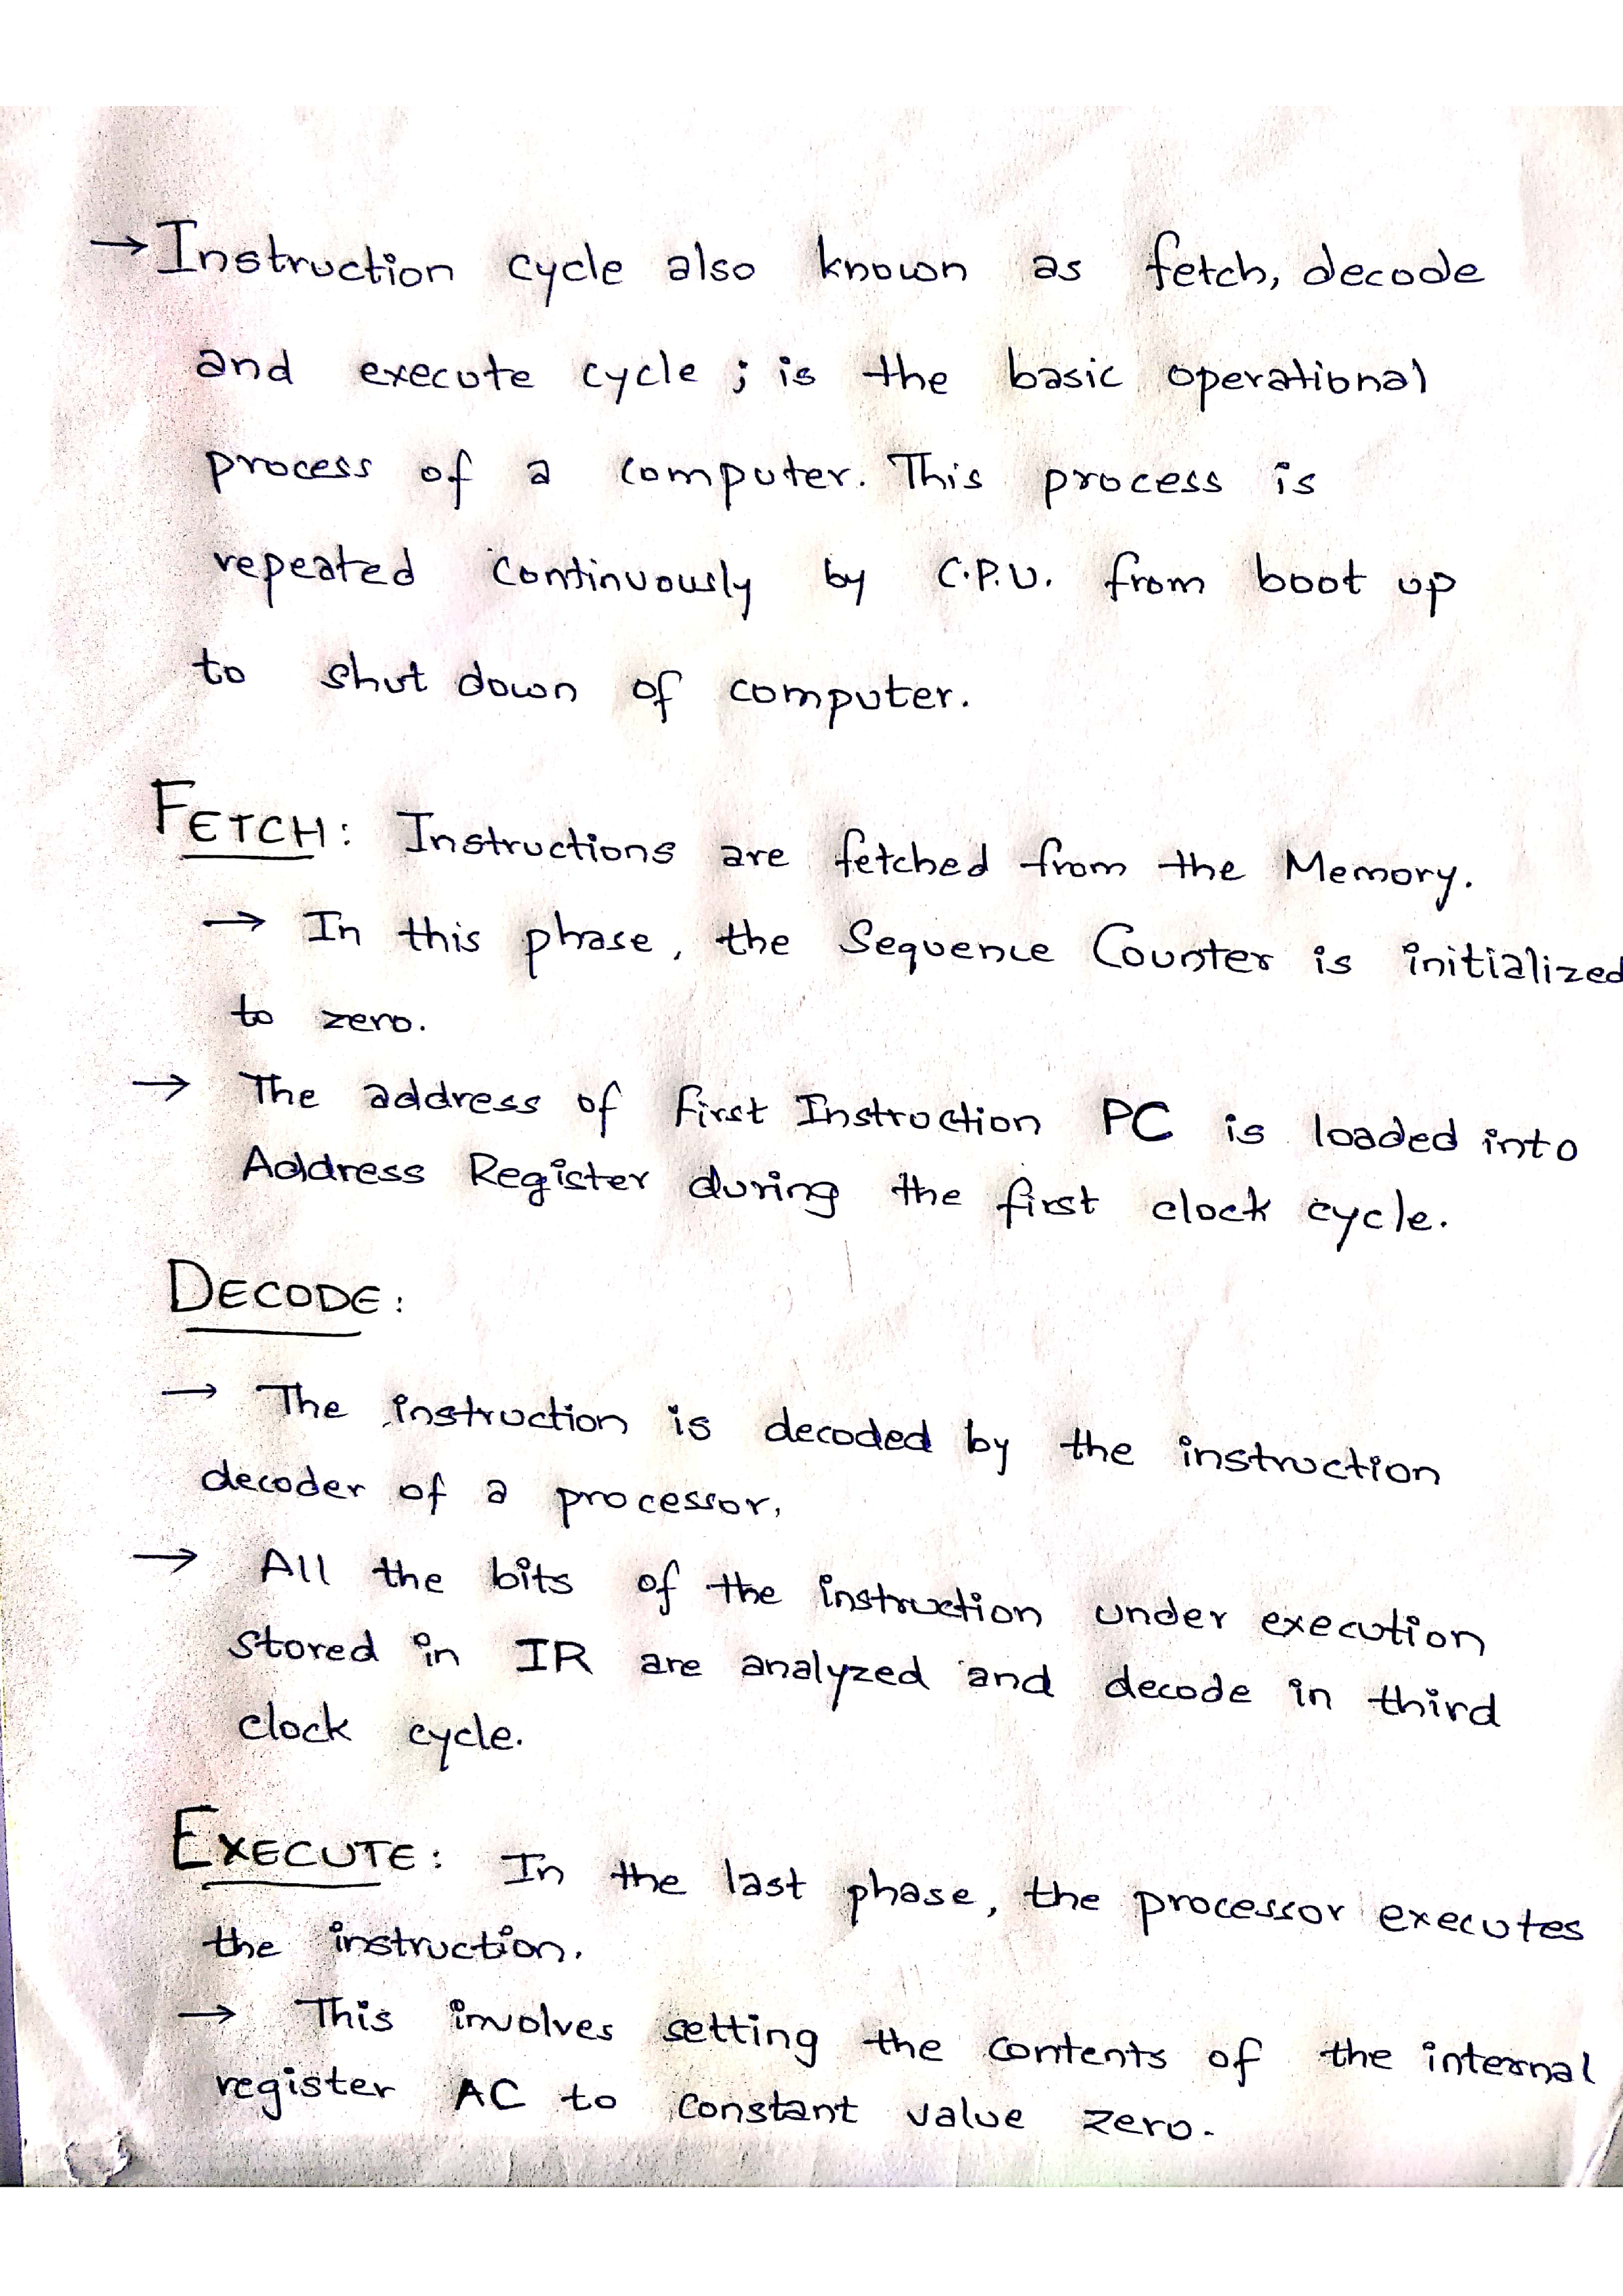 → Instruction cycle also known as fetch, decode
and execute cycle ; is the basic operational
process of a computer. This process is
repeated continuously by C.P.U. from boot up
to shut down of computer.
FETCH : Instructions are fetched from the Memory.
→ In this phase, the Sequence Counter is initialized
to zero.
→ The address of first Instruction PC is loaded into
Address Register during the first clock cycle.
DECODE :
→ The instruction is decoded by the instruction
decoder of a processor.
→ All the bits of the instruction under execution
stored in IR are analyzed and decode in third
clock cycle.
EXECUTE : In the last phase, the processor executes
the instruction.
→ This involves setting the contents of the internal
register AC to constant value zero.